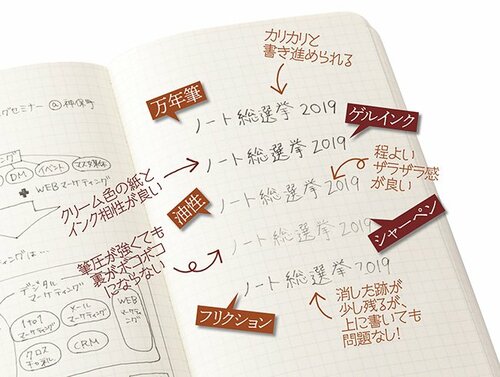 カリカリと
書き進められる
万年筆
ノート総選挙2019
ゲルインク
ノート総選挙2019
クリーム色の紙と
インク相性が良い
程よい
ザラザラ感
が良い
油性
ノート総選挙2019
シャーペン
ノート総選挙2019
筆圧が強くても
裏がボコボコ
にならない
フリクション
ノート総選挙2019
消した跡が
少し残るが、
上に書いても
問題なし!
グセミナー @神保町
ィング
DM
イベント
WEBマーケティング
ィングは…
デジタル
マーケティング
1to1
マーケティング
メール
マーケティング
WEB
マーケ
ティング
クロス
チャネル
CRM